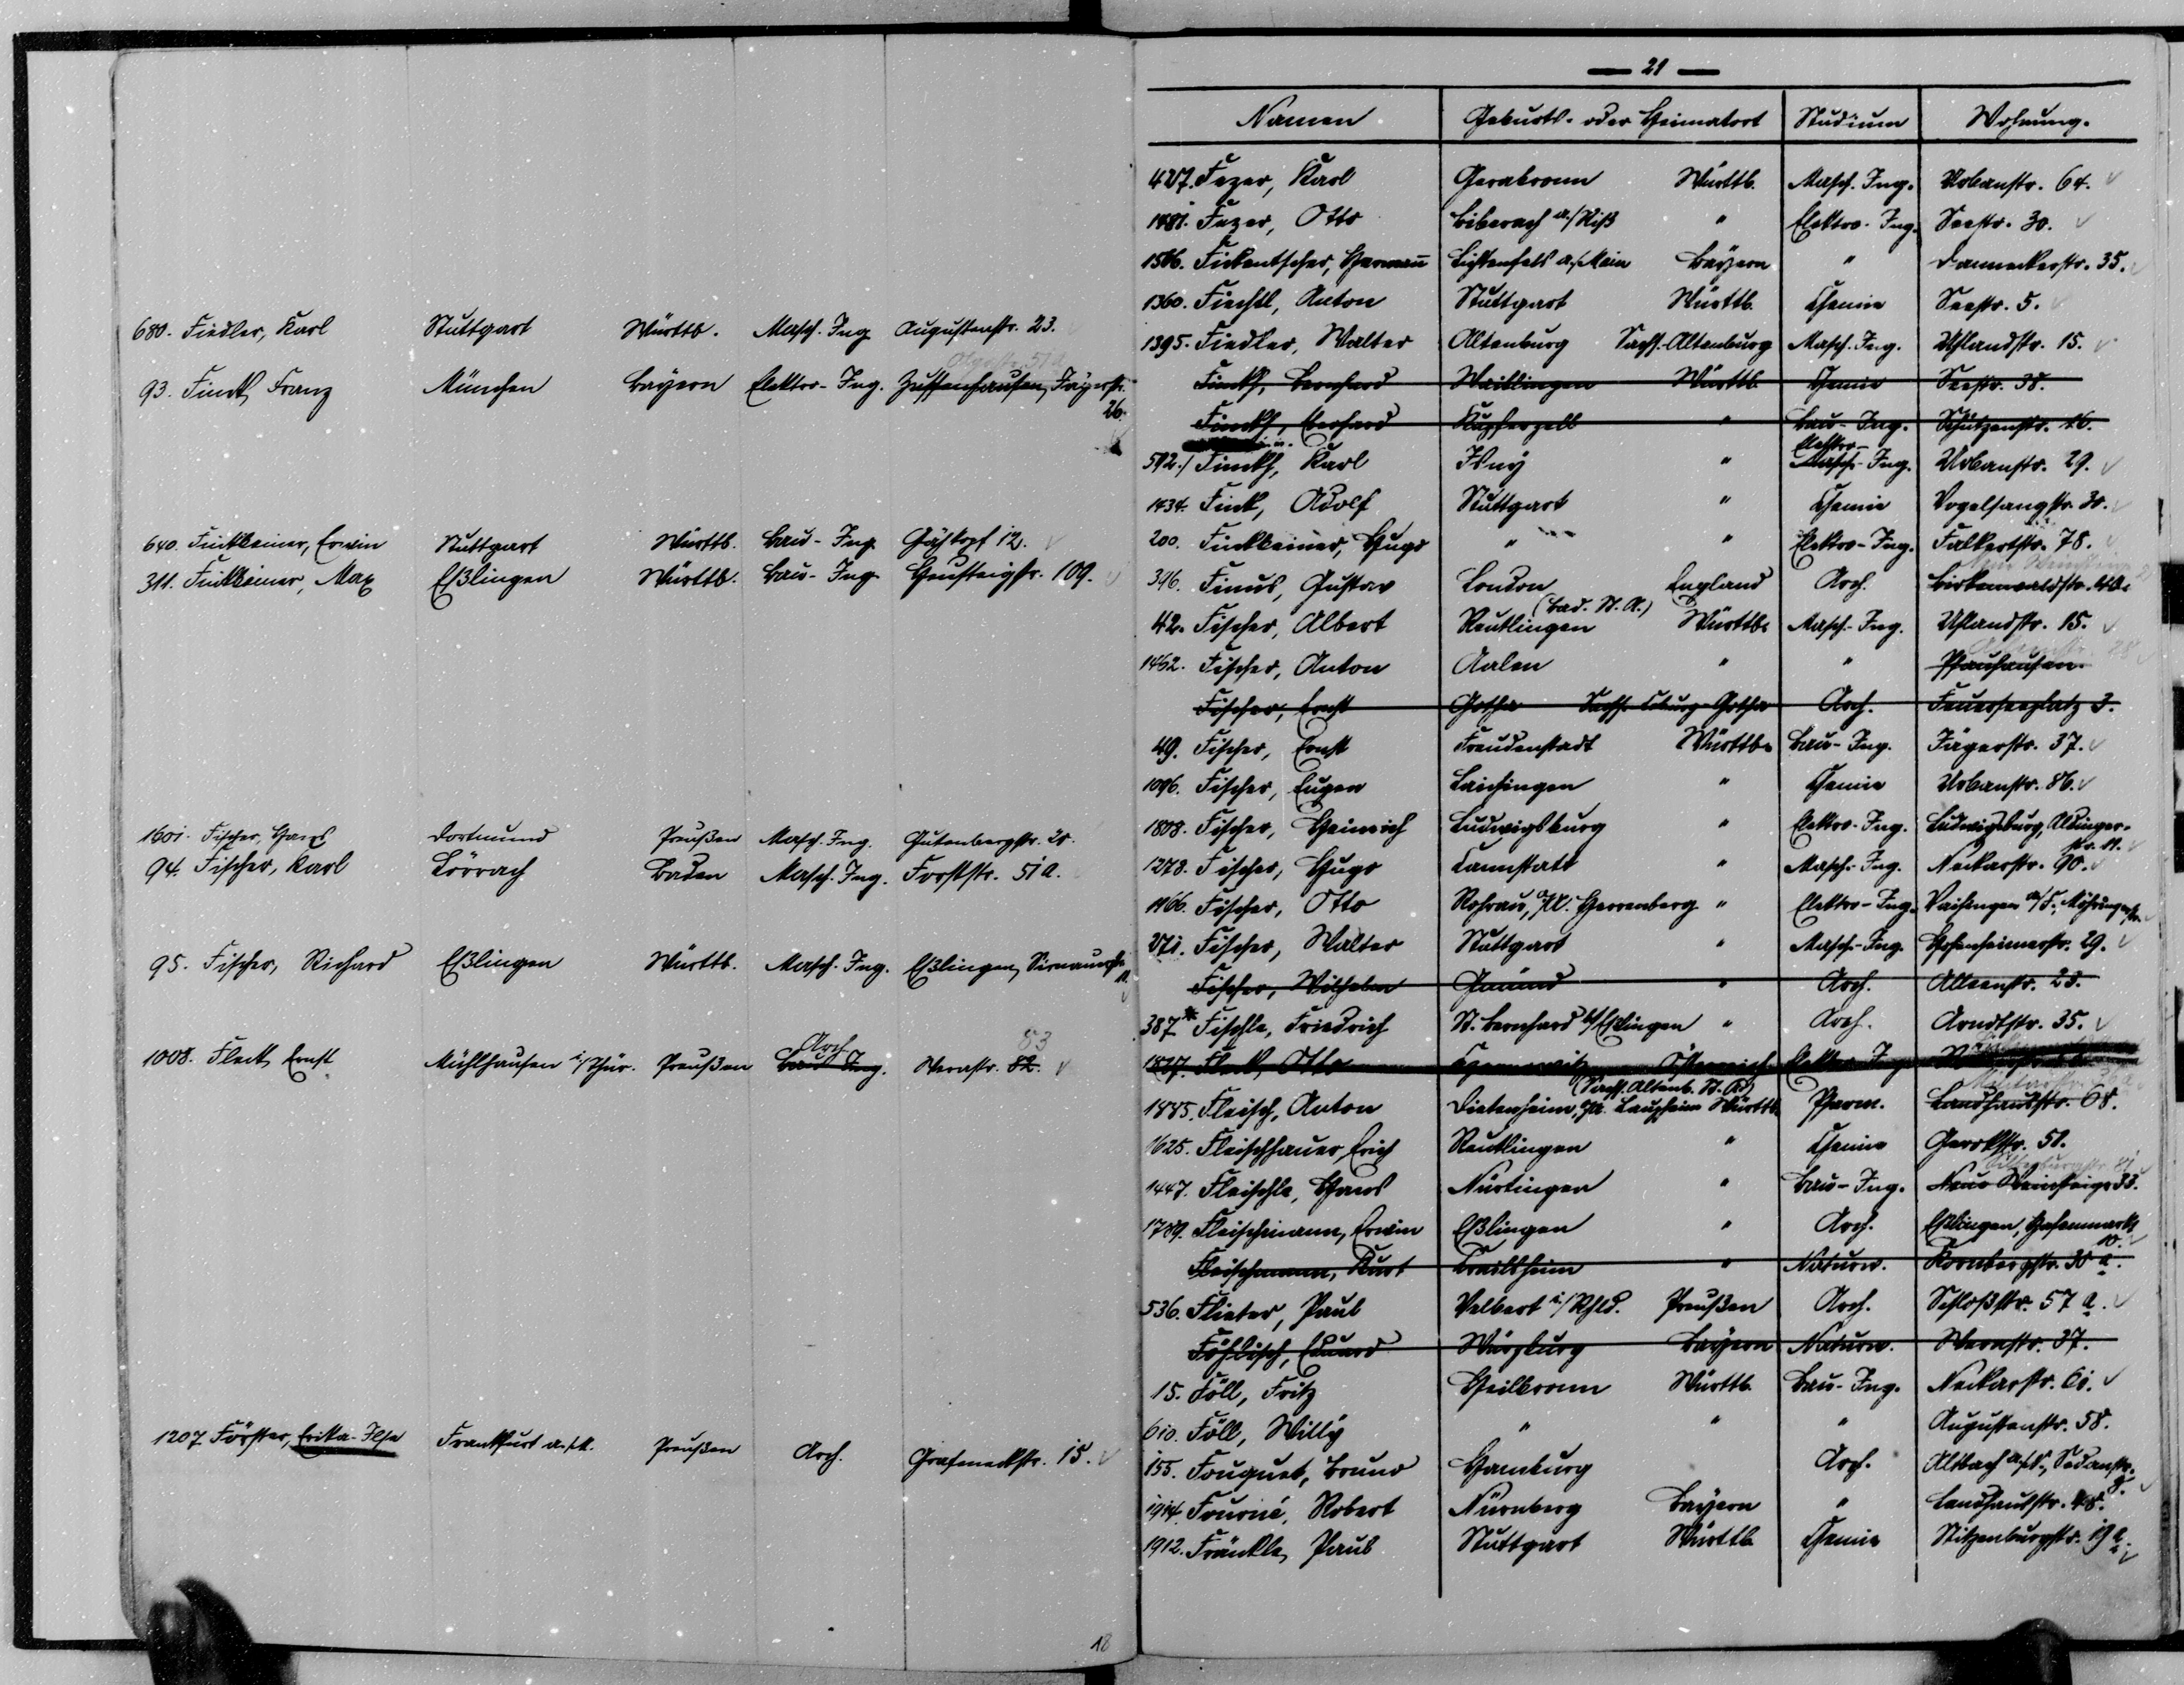 680. Fiedler, Karl Stuttgart Württb. Masch. Ing. Augustenstr. 23.
93. Finck, Franz München Bayern Elektro-Ing. Zuffenhausen, Jägerstr.
26.
640. Finkbeiner, Erwin Stuttgart Württb. Bau-Ing. 12.
311. Finkbeiner, Max Eßlingen Württb. Bau-Ing. Heusteigstr. 109.
1601. Fischer, Hans Dortmund Preußen Masch. Ing. Gutenbergstr. 20.
94. Fischer, Karl Lörrach Baden Masch. Ing. Forststr. 51a.
95. Fischer, Richard Eßlingen Württb. Masch. Ing. Eßlingen, Sirnauerstr.
Arch. 83
1008. Fleck, Ernst Mühlhausen i/Thür. Preußen Bau Ing. Werastr. 82.
1207 Förster, Erika-Ilse Frankfurt a./M. Preußen Arch. Grafeneckstr. 15.
18
— 21 —
Namen Geburts- oder Heimatort Studium Wohnung.
427. Fezer, Karl Gerabronn Württb. Masch. Ing. Urbanstr. 64.
1481. Fezer, Otto Biberach a./Riß " Elektro-Ing. Seestr. 30.
1566. Fikentscher, Hermann Lichtenfels a./Main Bayern " Danneckerstr. 35.
1360. Fiechtl, Anton Stuttgart Württb. Chemie Seestr. 5.
1395. Fiedler, Walter Altenburg Sachs.-Altenburg Masch. Ing. Uhlandstr. 15.
Finckh, Bernhard Waiblingen Württb. Chemie Seestr. 38.
Finckh, Eberhard Kupferzell " Bau-Ing. Schützenstr. 16.
Elektro-
592. Finckh, Karl Isny " Masch-Ing. Urbanstr. 29.
1434. Fink, Adolf Stuttgart " Chemie Vogelsangstr. 30.
200. Finkbeiner, Hugo " " Elektro-Ing. Falkertstr. 78.
346. Finus, Gustav London England Arch. Birkenwaldstr.
(bad. St. A.)
42. Fischer, Albert Reutlingen Württb. Masch.-Ing. Uhlandstr. 15.
1462. Fischer, Anton Aalen " " Pfauhausen.
Fischer, Ernst Gotha Sachs. Coburg-Gotha Arch. Feuerseeplatz 3.
49. Fischer, Ernst Freudenstadt Württb. Bau-Ing. Jägerstr. 37.
1096. Fischer, Eugen Laichingen " Chemie Urbanstr. 86.
1808. Fischer, Heinrich Ludwigsburg " Elektro-Ing. Ludwigsburg, Aldinger-
str. 11.
1278. Fischer, Hugo Cannstatt " Masch.-Ing. Neckarstr. 90.
1166. Fischer, Otto Rohrau, O/A. Herrenberg " Elektro-Ing. Vaihingen a/F., Möhringerstr.
271. Fischer, Walter Stuttgart " Masch-Ing. Hohenheimerstr. 29.
Fischer, Wilhelm Gmünd " Arch. Alleenstr. 23.
387* Fischle, Friedrich St. Bernhard b/Eßlingen " Arch. Arndtstr. 35.
1827. Fleck, Otto Czernowitz Österreich Elektro-Ing.
(Sachs. Altenb. St. A.)
1885. Fleisch, Anton Dietenheim, OA. Laupheim Württb. Pharm. Landhausstr. 68.
1625. Fleischhauer, Erich Reutlingen " Chemie Gerokstr. 51.
1447. Fleischle, Hans Nürtingen " Bau-Ing. Neue Weinsteige 33.
1789. Fleischmann, Erwin Eßlingen " Arch. Eßlingen, Hafenmarkt
10.
Fleischmann, Kurt Crailsheim " Naturw. Kornbergstr. 30 a.
536. Flieter, Paul Velbert i./Rhld. Preußen Arch. Schloßstr. 57 a.
Föhlisch, Eduard Würzburg Bayern Naturw. Werastr. 37.
15. Föll, Fritz Heilbronn Württb. Bau-Ing. Neckarstr. 61.
610. Föll, Willy " " " Augustenstr. 58.
155. Fouquet, Bruno Hamburg Arch. Altbach a./N., Sedanstr.
1914. Fournié, Robert Nürnberg Bayern " Landhausstr. 48.
1912. Fränkle, Paul Stuttgart Württb. Chemie Stitzenburgstr. 19 a.